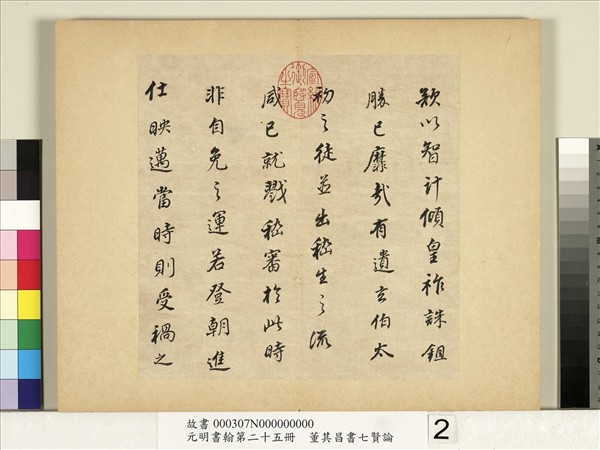 欵以智計傾皇祚誅鉏
勝己靡哉有遺玄伯太
初之徒並出嵇生之流
咸已就戮嵇審於此時
非自免之運若登朝進
仕映邁當時則受禍之
宣統御覽之寶
故書 000307N000000000
元明書翰第二十五冊　董其昌書七賢論
2